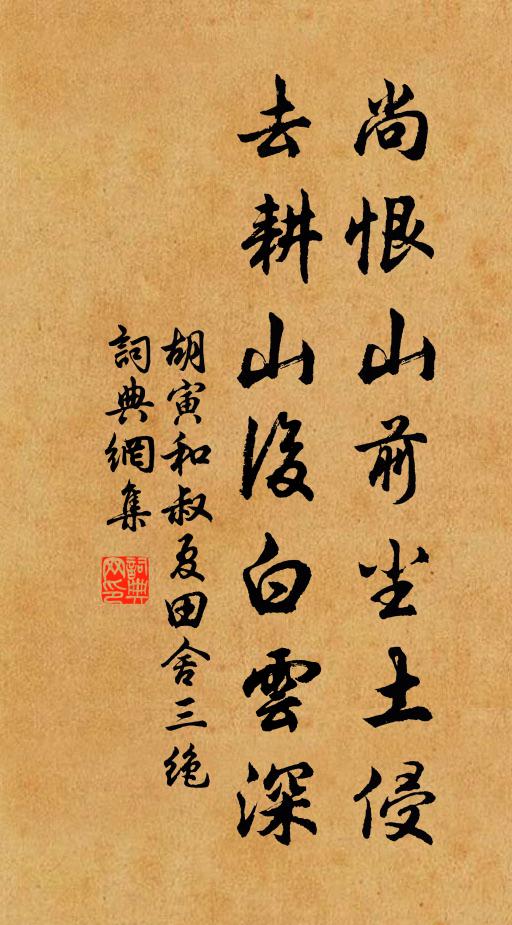 尚恨山前尘土侵
去耕山後白雲深
胡寅和叔夏田舍三绝
詞典網集
詞典网印